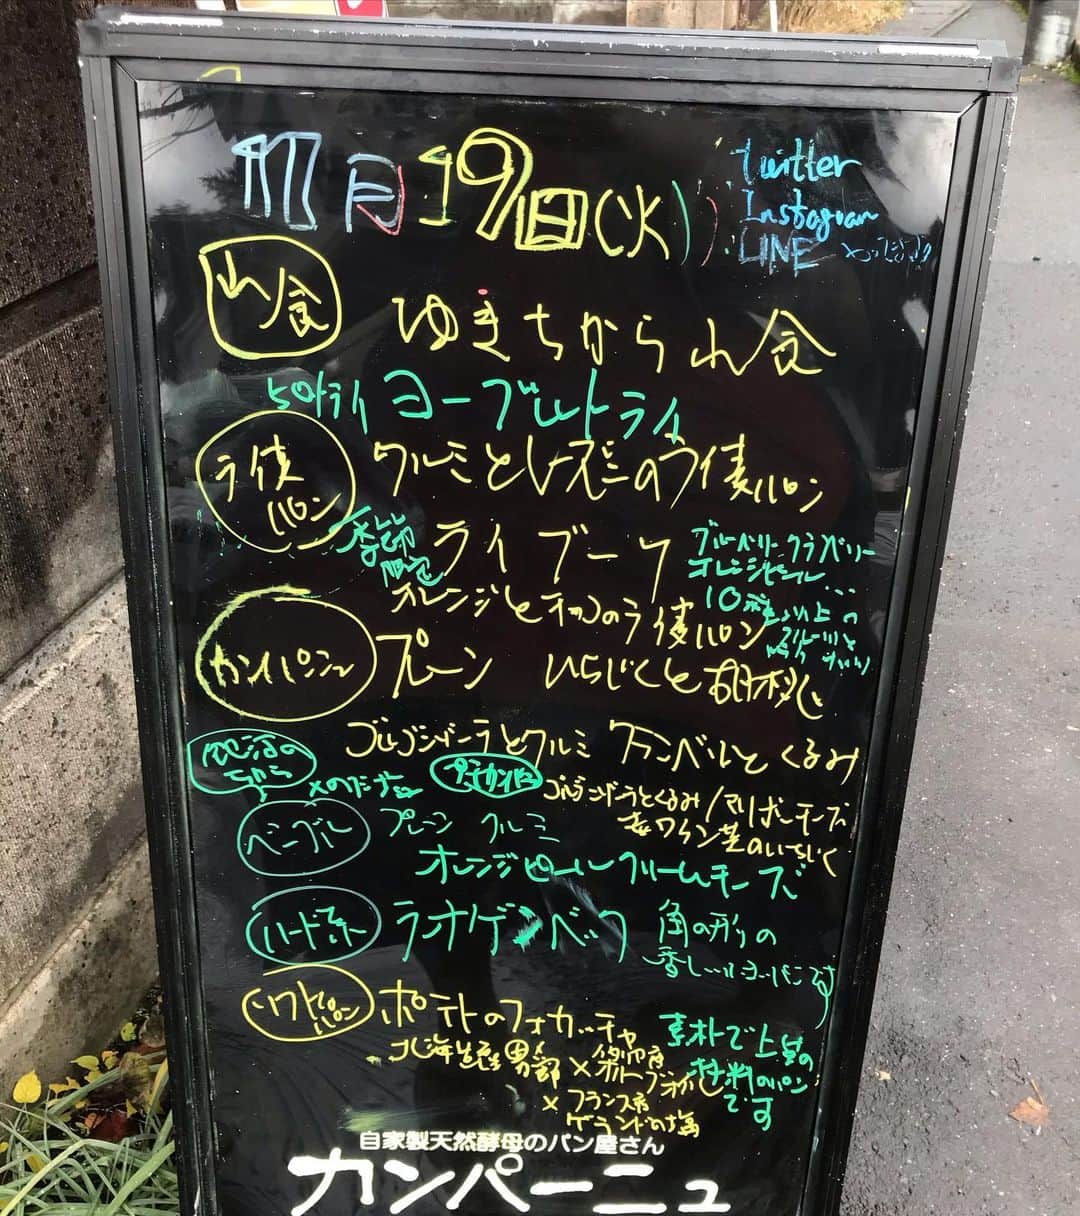 11月19日(火)
twitter
Instagram
LINE
山食
ゆきちから山食
ヨーグルトライ
ライ麦パン
クルミとレーズンのライ麦パン
季節限定
ライブーケ
ブルーベリー クランベリー
オレンジピール...
10種以上の
オレンジとチョコのライ麦パン
カンパーニュ
プレーン いちじくと胡桃
ゴルゴンゾーラとクルミ カマンベールとくるみ
プチカンパ
ゴルゴンゾーラとくるみ/マリボーチーズ
赤ワイン煮のいちじく
ベーグル
プレーン クルミ
オレンジピールクリームチーズ
ハード系
ラオゲンベック
角の形の
ソフトパン
ポテトのフォカッチャ
北海道産男爵
×フランス産
ゲランドの塩
素朴で上質の
材料のパン
です
自家製天然酵母のパン屋さん
カンパーニュ